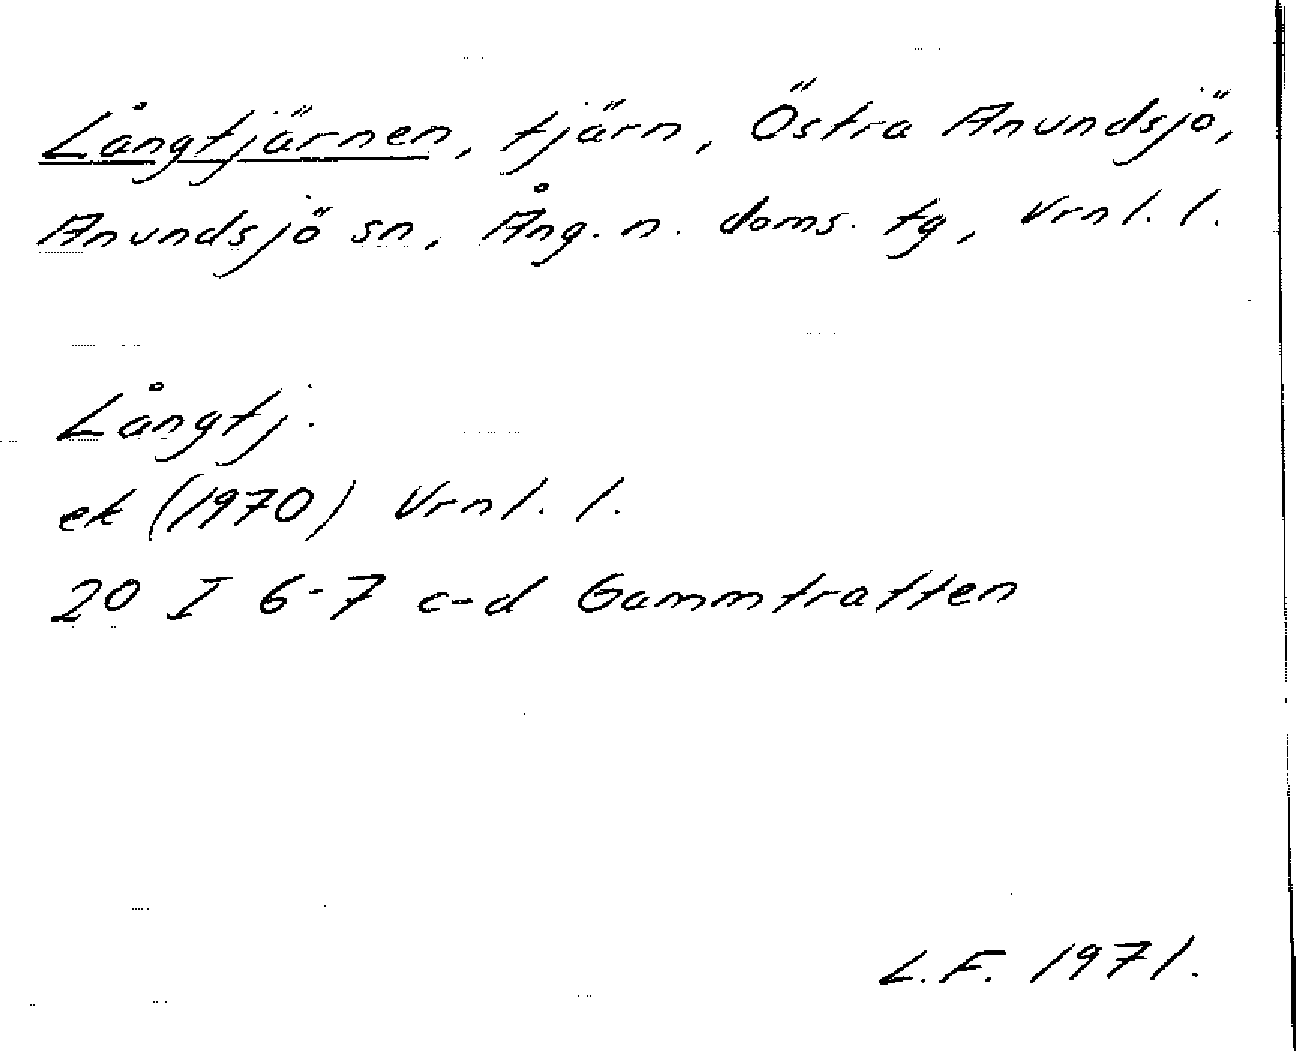 Långtjärnen, tjärn, Östra Anundsjö,
Anundsjö sn, Ång. n. doms. tg, Vrnl. l.
Långtj.
ek (1970) Vrnl. l.
20 I 6-7 c-d Gammtratten
L.F. 1971.